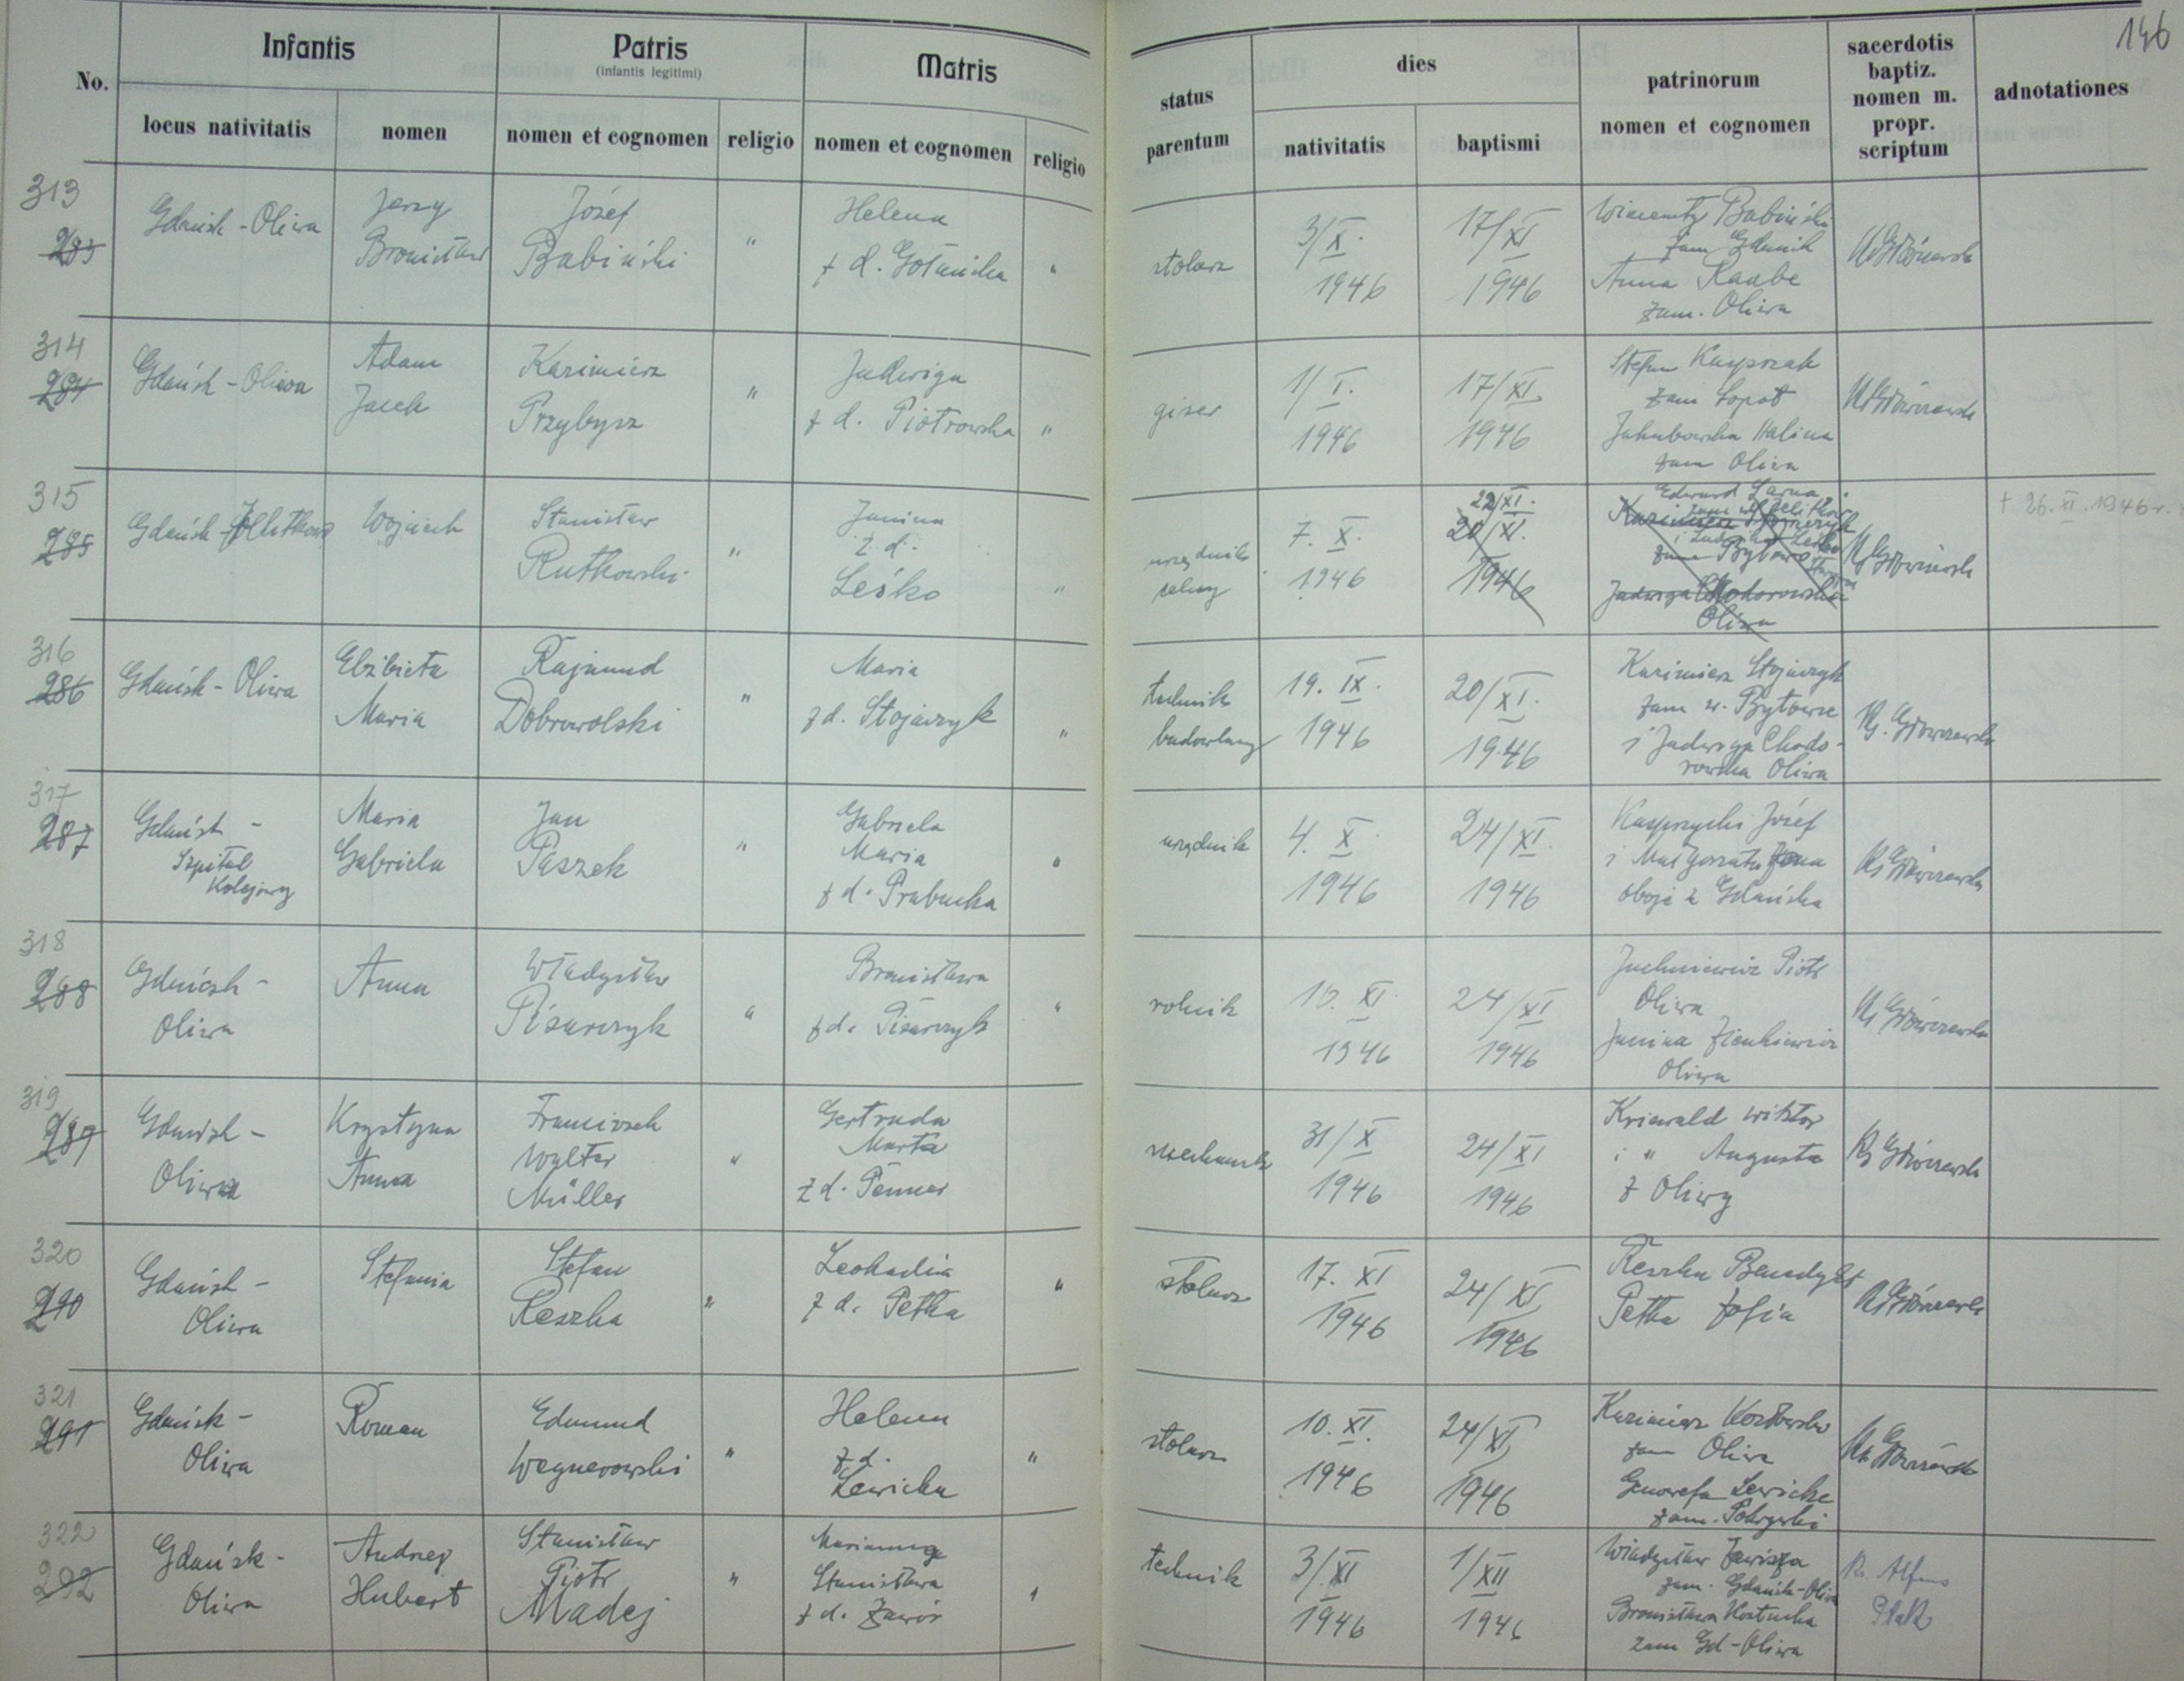 146
No.
Infantis
Patris
(infantis legitimi)
Matris
status
parentum
dies
patrinorum
nomen et cognomen
sacerdotis
baptiz.
nomen m.
propr.
scriptum
adnotationes
locus nativitatis
nomen
nomen et cognomen
religio
nomen et cognomen
religio
nativitatis
baptismi
313
283
Gdańsk-Oliwa
Jerzy
Bronisław
Józef
Babiński
"
Helena
z d. Gołuńska
"
stolarz
3/X.
1946
17/XI
1946
Wincenty Babiński
zam Gdańsk
Anna Raabe
zam. Oliwa
314
284
Gdańsk-Oliwa
Adam
Jacek
Kazimierz
Przybysz
"
Jadwiga
z d. Piotrowska
"
giser
1/I.
1946
17/XI.
1946
Stefan Kasprzak
zam Sopot
Jakubowska Halina
zam Oliwa
315
285
Gdańsk-Jelitkowo
Wojciech
Stanisław
Rutkowski
"
Janina
z d.
Leśko
"
urzędnik
celny
7. X.
1946
22/XI.
20/XI.
1946
Edward Sarna
Kazimierz Stojaczyk
zam Bytowo
Jadwiga Chodorowska
Oliwa
† 26.XI.1946 r.
316
286
Gdańsk-Oliwa
Elżbieta
Maria
Rajmund
Dobrowolski
"
Maria
z d. Stojaczyk
"
technik
budowlany
19. IX.
1946
20/XI.
1946
Kazimierz Stojaczyk
zam w. Bytowie
i Jadwiga Chodo-
rowska Oliwa
317
287
Gdańsk -
Szpital
Kolejowy
Maria
Gabriela
Jan
Paszek
"
Gabriela
Maria
z d. Prabucka
"
urzędnik
4. X.
1946
24/XI.
1946
Kasprzycki Józef
i Małgorzata żona
oboje z Gdańska
318
288
Gdańsk -
Oliwa
Anna
Władysław
Pisarczyk
"
Bronisława
z d. Pisarczyk
"
rolnik
10. XI.
1946
24/XI
1946
Juchniewicz Piotr
Oliwa
Janina Zienkiewicz
Oliwa
319
289
Gdańsk -
Oliwa
Krystyna
Anna
Franciszek
Walter
Müller
"
Gertruda
Marta
z d. Penner
mechanik
31/X
1946
24/XI
1946
Kriewald Wiktor
i " Augusta
z Oliwy
320
290
Gdańsk -
Oliwa
Stefania
Stefan
Reszka
"
Leokadia
z d. Petka
"
stolarz
17. XI
1946
24/XI
1946
Reszka Benedykt
Petka Zofia
321
291
Gdańsk -
Oliwa
Roman
Edmund
Wegnerowski
"
Helena
z d.
Lewicka
"
stolarz
10. XI.
1946
24/XI
1946
Kazimierz Kozłowski
zam Oliwa
Genowefa Lewicka
322
292
Gdańsk -
Oliwa
Andrzej
Hubert
Stanisław
Piotr
Madej
"
Marianna
Stanisława
z d. Zawór
"
technik
3/XI
1946
1/XII
1946
Władysław Zawisza
zam. Gdańsk-Oliwa
Bronisława
zam Gd-Oliwa
Ks. Alfons